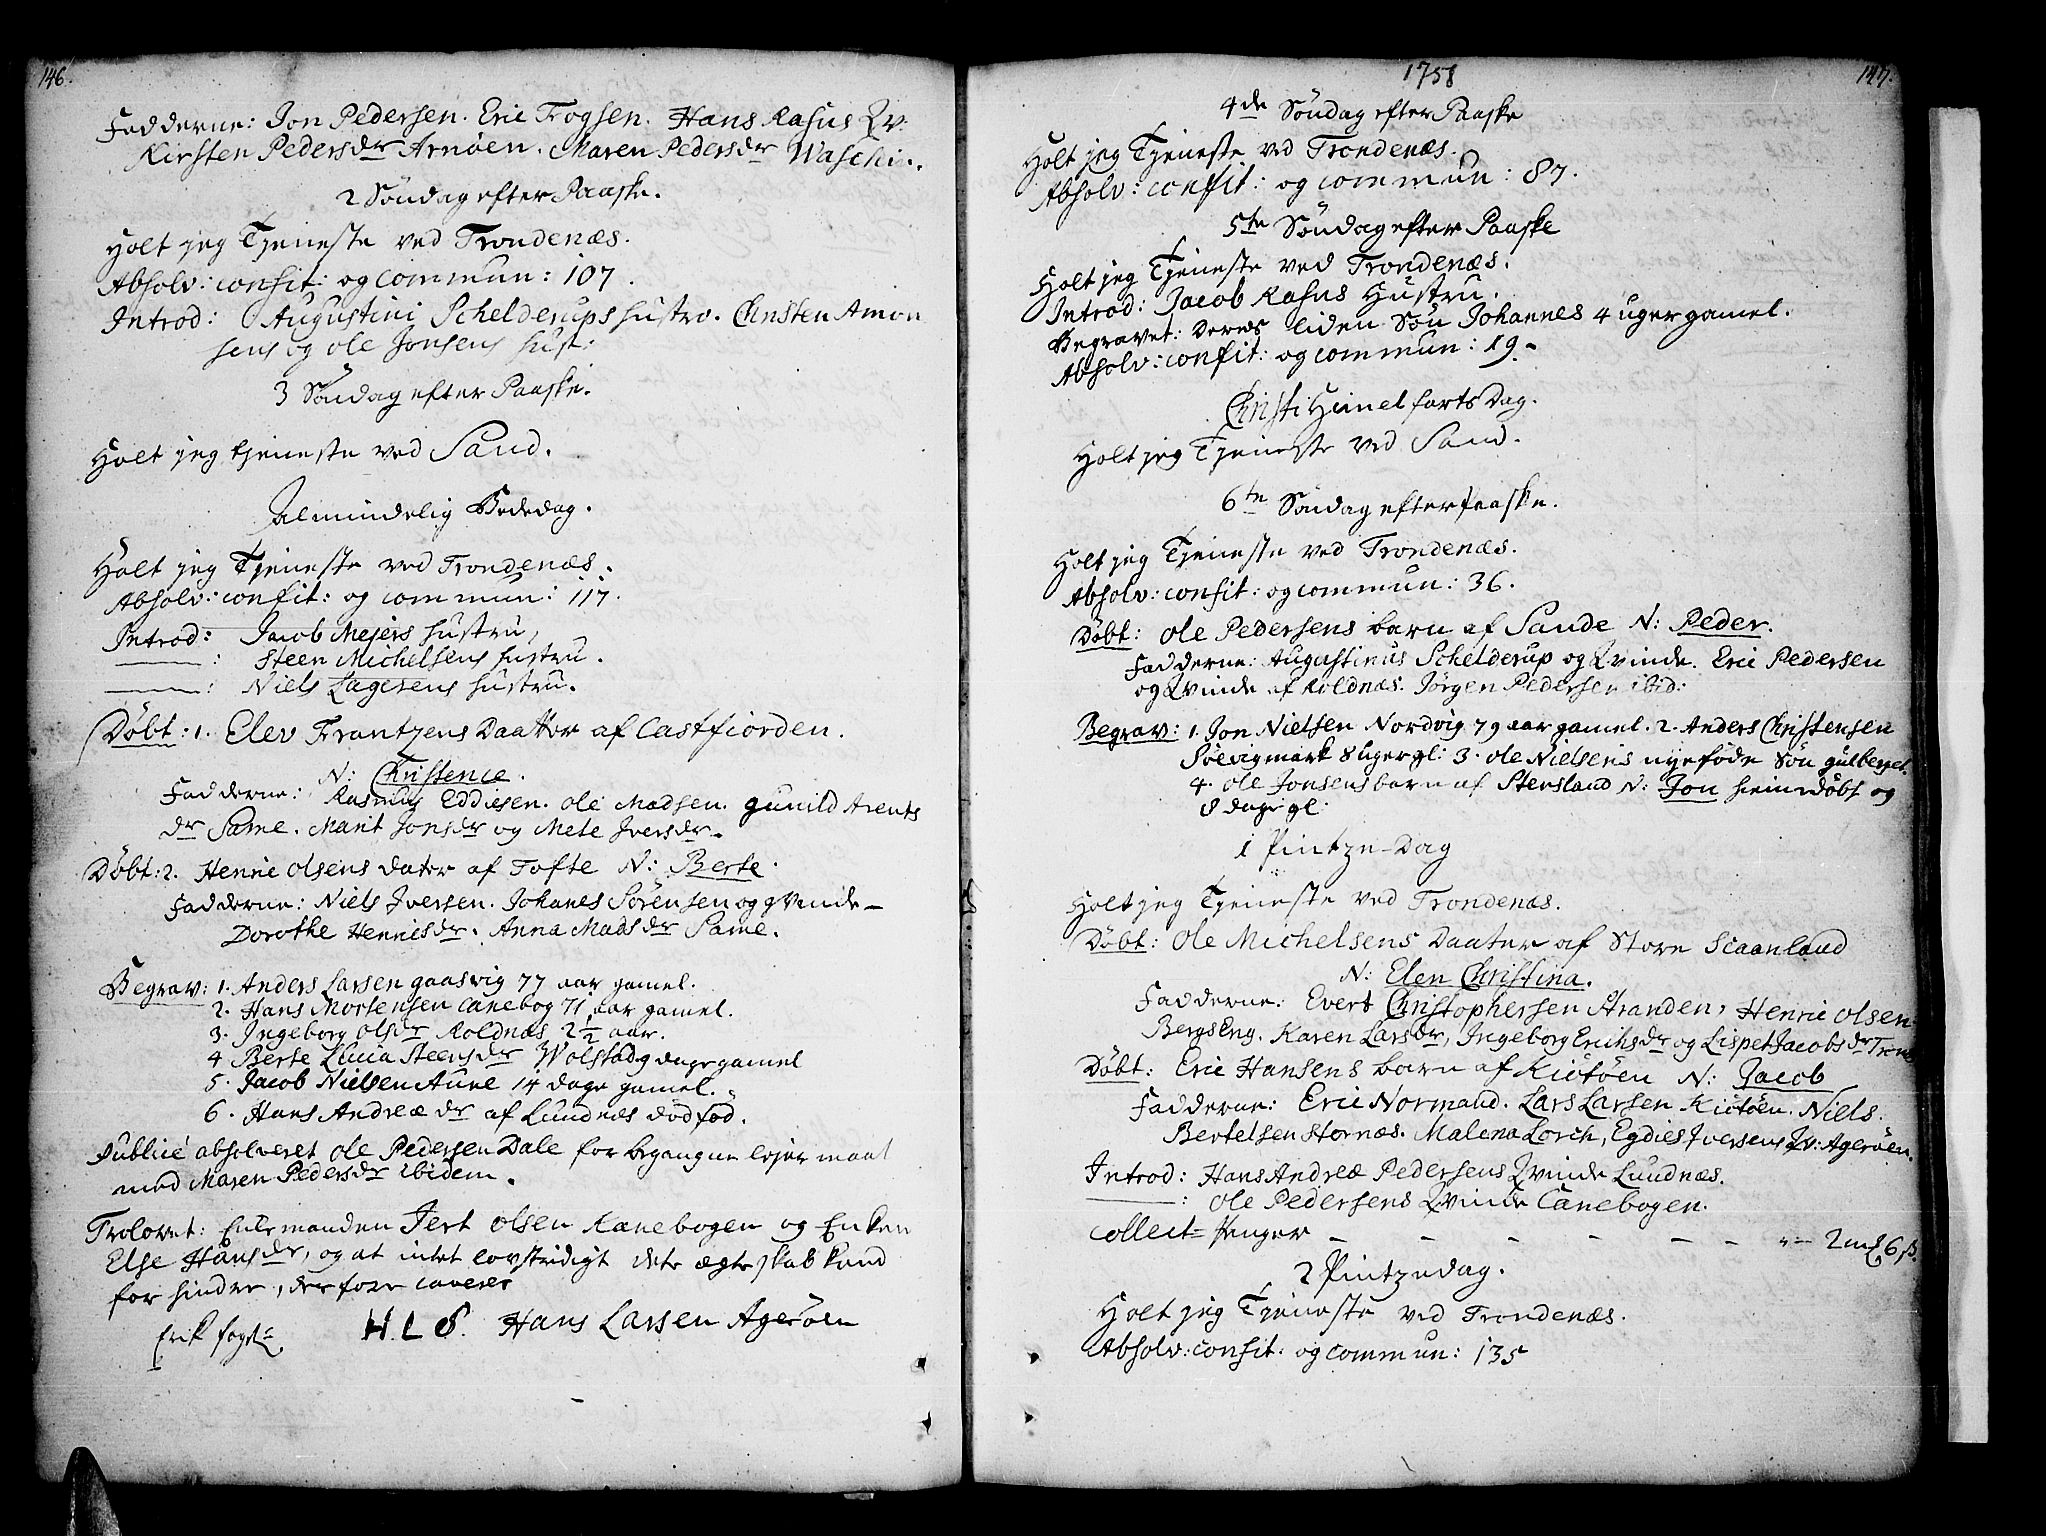 146.
Fadderne: Jon Pedersen. Eric Trogsen. Hans Rasus Qv:
Kirsten Pedersdr Arnöen. Maren Pedersdr
2 Söndag efter Paaske.
Holt jeg Tjeneste ved Trondenæs.
Absolv: confit: og commun: 107.
Introd: Augustini Schelderups hustro. Christen Amon
sens og Ole Jonsens hust:
3 Söndag efter Paaske.
Holt jeg tjeneste ved Sand.
Almindelig Bededag.
Holt jeg Tjeneste ved Trondenæs.
Absolv: confit: og commun: 117.
Introd: Jacob Mejers hustru,
——: Steen Michelsens hustru.
——: Niels Lagesens hustru.
Döbt: 1. Elev Frantzens Daatter af Castfiorden.
N: Christence.
Fadderne: Rasmus Eddiesen. Ole Madsen. Gunild Arents
dr Same. Marit Jonsdr og Mete Iversdr.
Döbt: 2. Henric Olsens dater af Tofte N: Berte.
Fadderne: Niels Iversen. Johanes Sörensen og qvinde –
Dorothe Henricsdr. Anna Madsdr Same.
Begrav: 1. Anders Larsen Gaasvig 77 aar gamel.
2. Hans Mortensen Canebog 71 aar gamel.
3. Ingeborg Olsdr Roldnæs 2 1/2 aar.
4 Berte Lucia Steensdr Wolstad 9 dage gamel
5. Jacob Nielsen Aune 14 dage gamel.
6. Hans Andreæ dr af Lundnæs dödföd.
Publicé absolveret Ole Pedersen Dale for begangne lejermaal
med Maren Pedersdr ibidem.
Trolovet: Enkemanden Jert Olsen Kanebogen og Enken
Else Hansdr, og at intet lovstridigt dette ægteskab kand
forhindre, derfore caverer
Erik H. L. S. Hans Larsen Ageröen
1758
147.
4de Söndag efter Paaske
Holt jeg Tjeneste ved Trondenæs.
Absolv: confit: og commun: 87.
5te Söndag efter Paaske
Holt jeg Tjeneste ved Trondenæs.
Introd: Jacob Rasus Hustru.
Begravet: Deres liden Sön Johannes 4 uger gamel.
Absolv: confit: og commun: 19.–
Christi Himelfarts Dag.
Holt jeg Tjeneste ved Sand.
6te Söndag efter Paaske.
Holt jeg Tjeneste ved Trondenæs.
Absolv: confit: og commun: 36.
Döbt: Ole Pedersens barn af Sande N: Peder.
Fadderne: Augustinus Schelderup og Qvinde. Eric Pedersen
og Qvinde af Roldnæs. Jörgen Pedersen ibid:
Begrav: 1. Jon Nielsen Nordvig 79 aar gamel. 2. Anders Christensen
Söevigmark 8 uger gl: 3. Ole Nielsens nyeföde Sön Gulberget.
4. Ole Jonsens barn af Stensland N: Jon hiemedöbt og
8 dage gl:
1 Pintze-Dag
Holt jeg Tjeneste ved Trondenæs.
Döbt: Ole Michelsens Daater af Store Scaanland
N: Elen Christina.
Fadderne: Evert Christophersen Aranden, Henric Olsen
Bergseng. Karen Larsdr, Ingeborg Erichsdr og Lispet Jacobsdr
Döbt: Eric Hansens barn af Kiötöen N: Jacob
Fadderne: Eric Normand. Lars Larsen Kiötöen. Niels
Bertelsen Stornæs. Malena Lorch, Egdies Iversens Qv: Ageröen.
Introd: Hans Andreæ Pedersens Qvinde Lundnæs.
——: Ole Pedersens Qvinde Canebogen.
Collect= Penger – – – – – – „– 2 m 6 ß.
2 Pintzedag.
Holt jeg Tjeneste ved Trondenæs.
Absolv: confit: og commun: 135